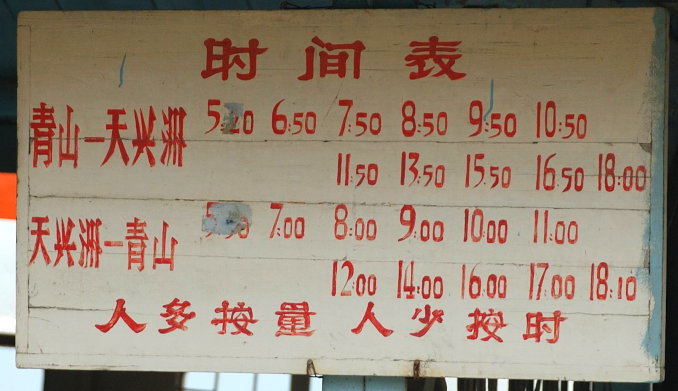 时间表
青山—天兴洲 6:50 7:50 8:50 9:50 10:50
11:50 13:50 15:50 16:50 18:00
天兴洲—青山 7:00 8:00 9:00 10:00 11:00
12:00 14:00 16:00 17:00 18:10
人多按量 人少按时